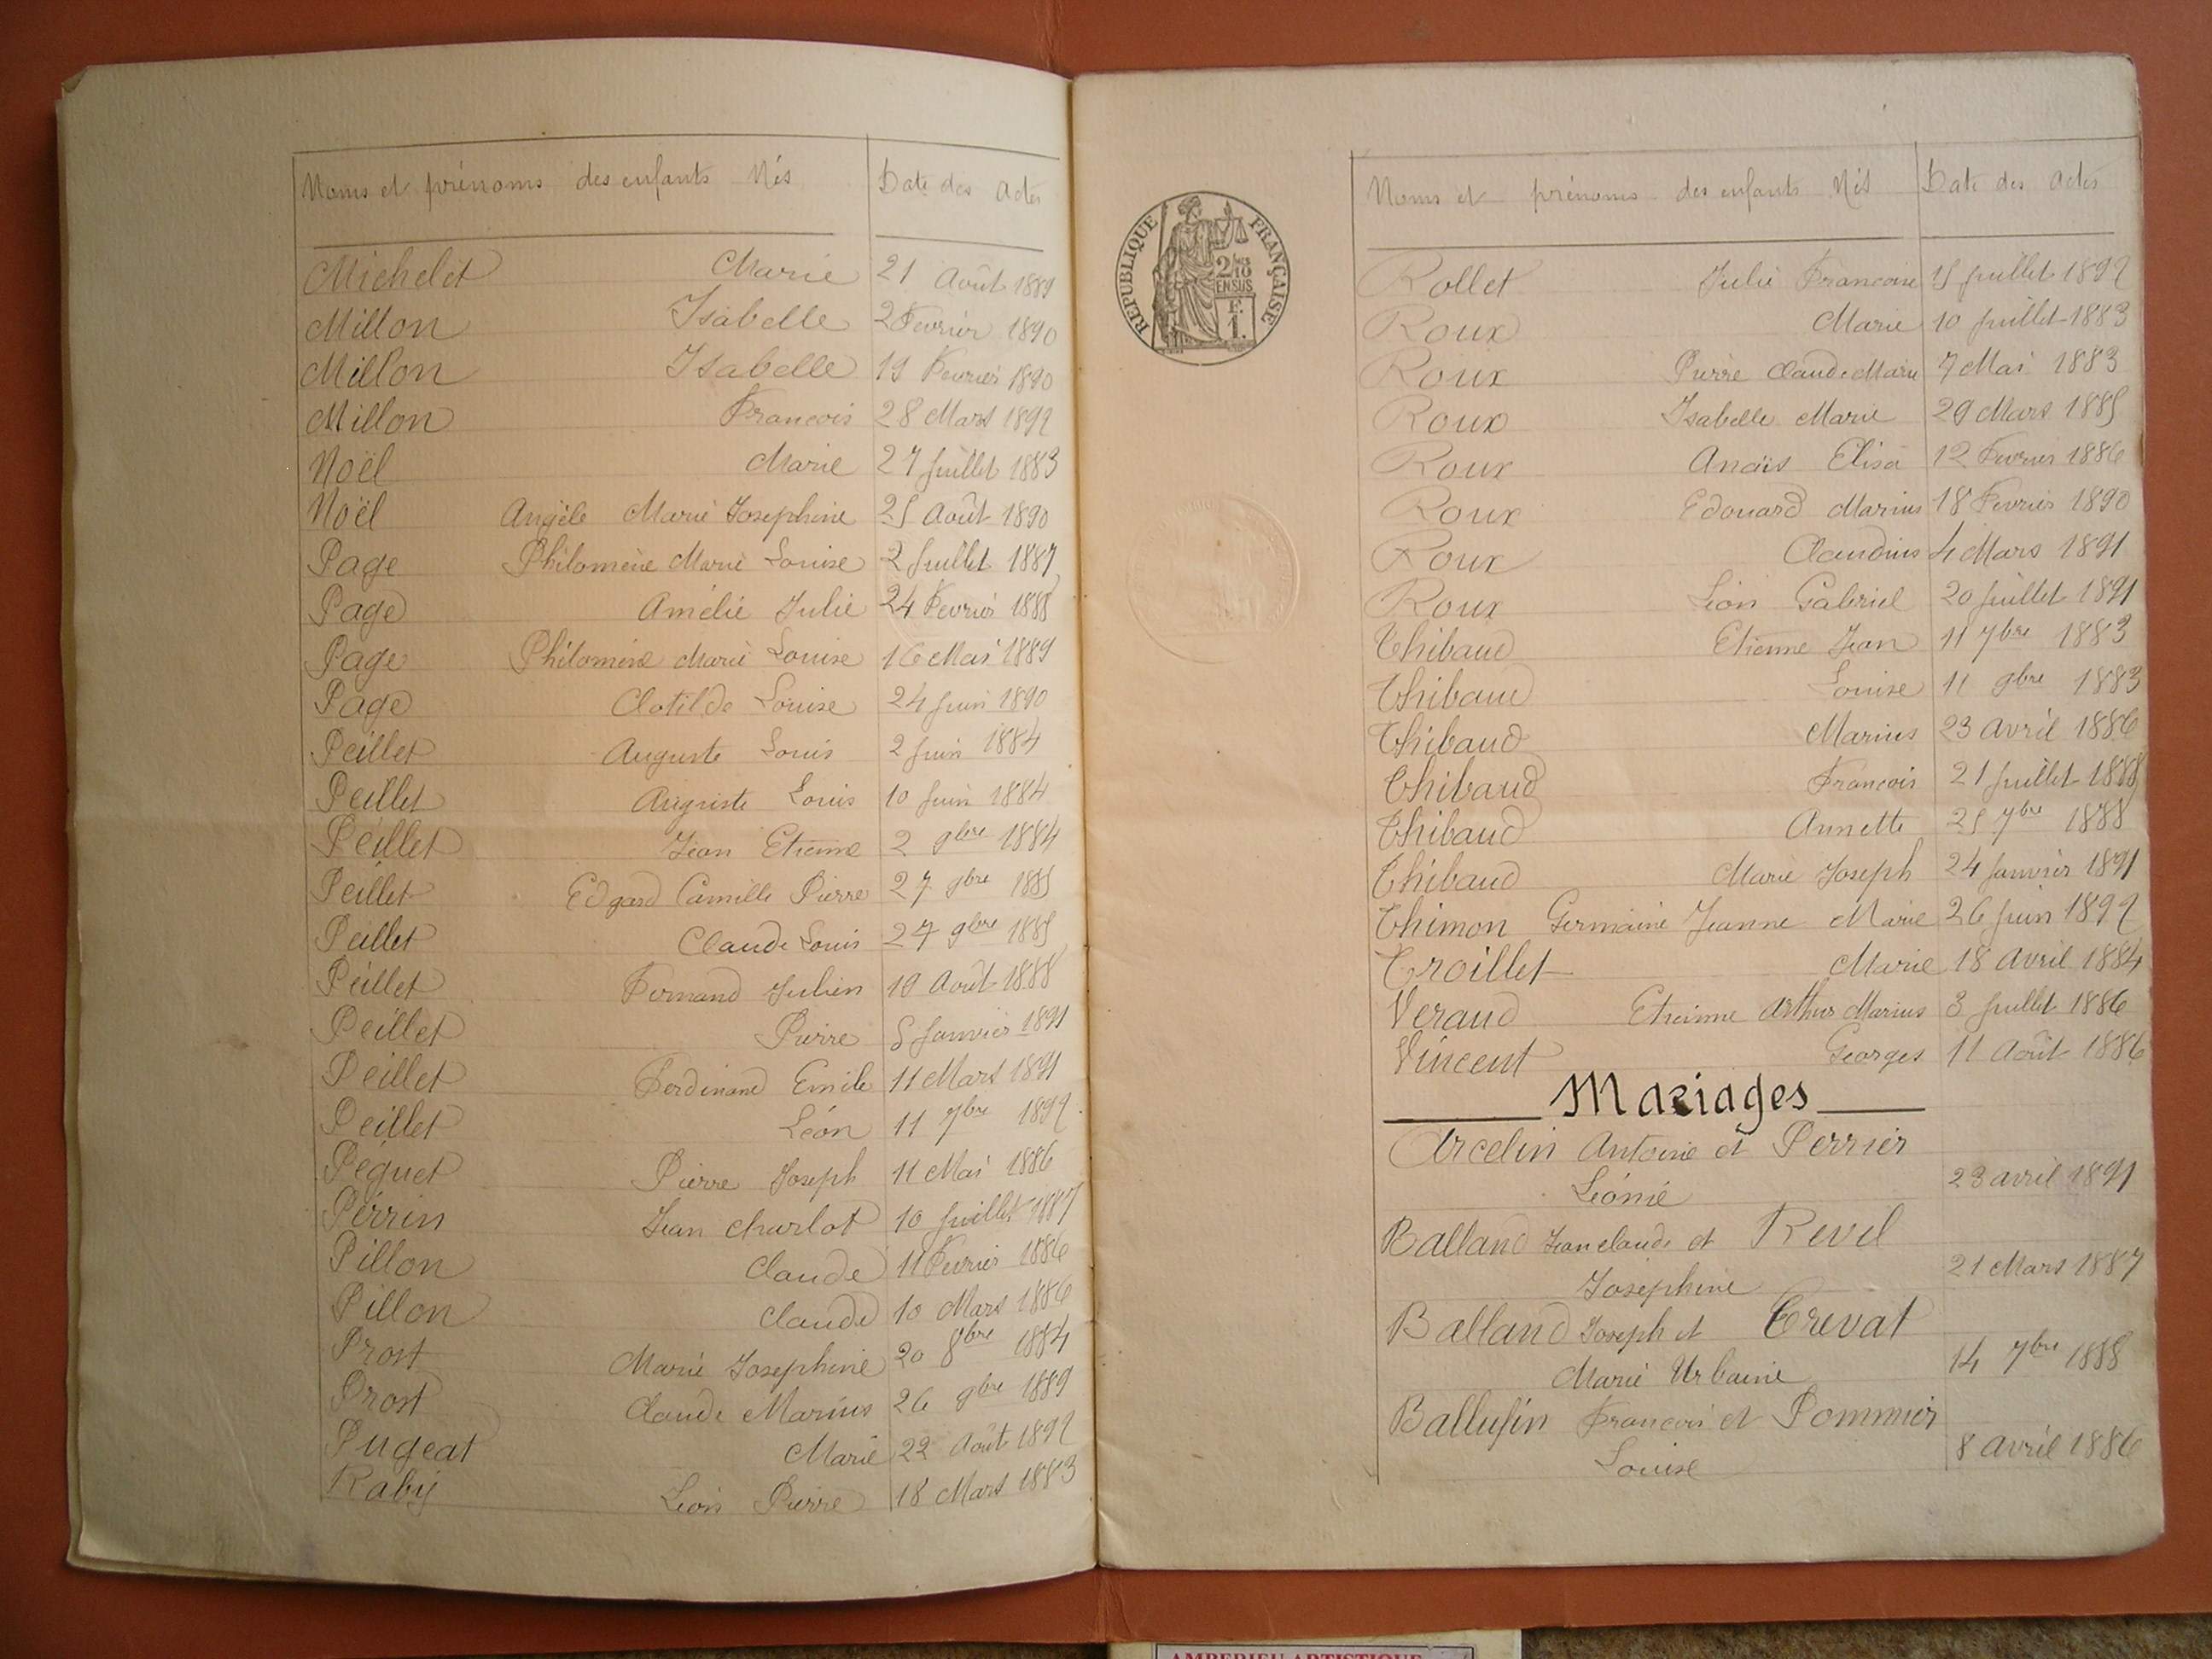 Noms et prénoms des enfants Nés Date des Actes
Michelet Marie 21 Août 1889
Millon Isabelle 2 Fevrier 1890
Millon Isabelle 19 Fevrier 1890
Millon Francois 28 Mars 1892
Noël Marie 27 Juillet 1883
Noël Angèle Marie Josephine 25 Août 1890
Page Philomène Marie Louise 2 Juillet 1887
Page Amélie Julie 24 Fevrier 1888
Page Philomène Marie Louise 16 Mai 1889
Page Clotilde Louise 24 Juin 1890
Peillet Auguste Louis 2 Juin 1884
Peillet Auguste Louis 10 Juin 1884
Peillet Jean Etienne 2 9bre 1884
Peillet Edgard Camille Pierre 27 9bre 1885
Peillet Claude Louis 27 9bre 1885
Peillet Fernand Julien 19 Août 1888
Peillet Pierre 5 Janvier 1891
Peillet Ferdinand Emile 11 Mars 1891
Peillet Léon 11 7bre 1892
Péquet Pierre Joseph 11 Mai 1886
Perrin Jean Charlot 10 Juillet 1887
Pillon Claude 11 Fevrier 1886
Pillon Claude 10 Mars 1886
Prost Marie Josephine 20 8bre 1884
Prost Claude Marius 26 9bre 1889
Pugeat Marie 22 Août 1892
Raby Léon Pierre 18 Mars 1883
REPUBLIQUE FRANÇAISE
2/10
EN SUS
F.
1.
Noms et prénoms des enfants Nés Date des Actes
Rollet Julie Francoise 15 Juillet 1892
Roux Marie 10 Juillet 1883
Roux Pierre Claude Marie 7 Mai 1883
Roux Isabelle Marie 29 Mars 1885
Roux Anaïs Elisa 12 Fevrier 1886
Roux Edouard Marius 18 Fevrier 1890
Roux Claudius 4 Mars 1891
Roux Léon Gabriel 20 Juillet 1891
Thibaud Etienne Jean 11 7bre 1883
Thibaud Louise 11 9bre 1883
Thibaud Marius 23 Avril 1886
Thibaud Francois 21 Juillet 1888
Thibaud Annette 25 7bre 1888
Thibaud Marie Joseph 24 Janvier 1891
Thimon Germaine Jeanne Marie 26 Juin 1892
Troillet Marie 18 Avril 1884
Veraud Etienne Arthur Marius 3 Juillet 1886
Vincent Georges 11 Août 1886
Mariages
Arcelin Antoine et Perrier
Léonie 23 avril 1891
Balland Jean claude et Revel
Josephine 21 Mars 1887
Balland Joseph et Trevat
Marie Urbaine 14 7bre 1888
Ballufin Francois et Pommier
Louise 8 avril 1886
AMBERIEU ARTISTIQUE